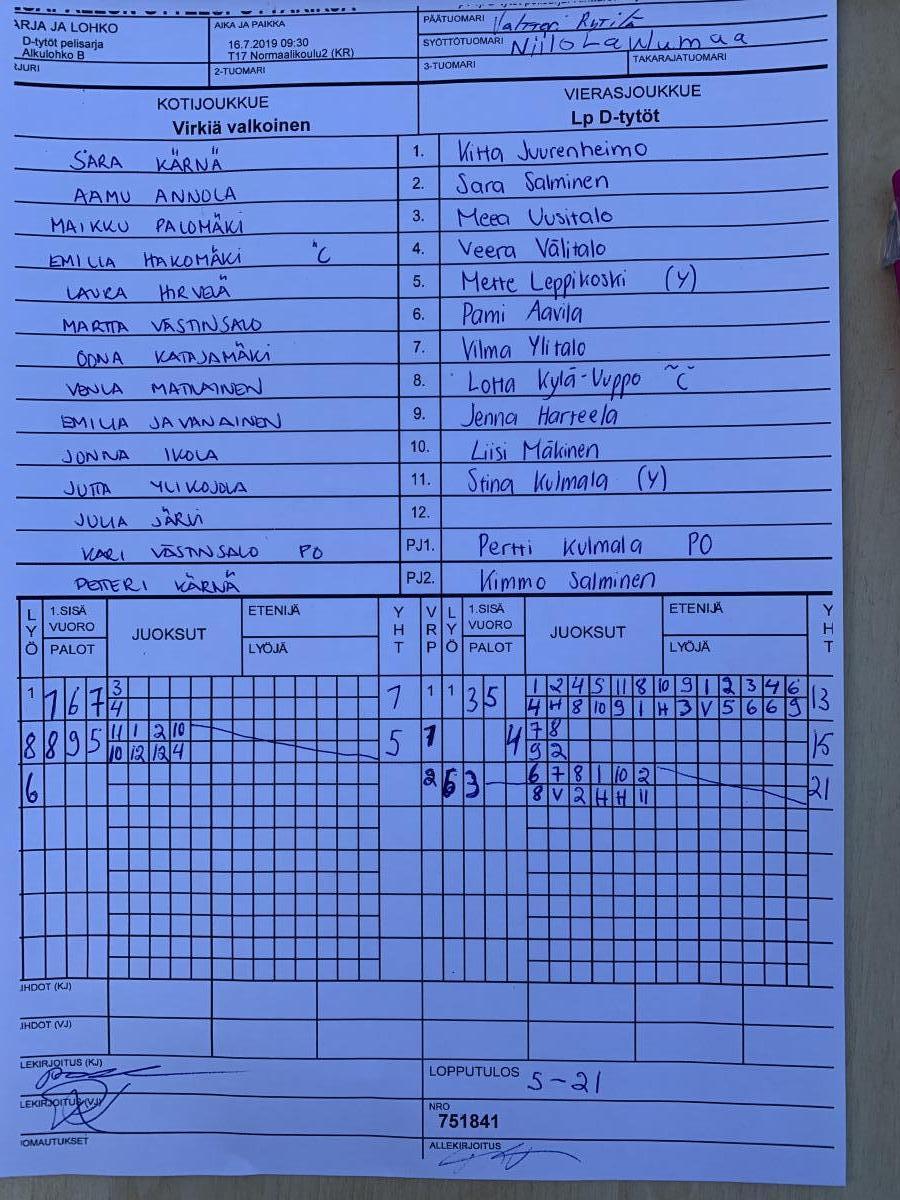 ARJA JA LOHKO
D-tytöt pelisarja
Alkulohko B
AIKA JA PAIKKA
16.7.2019 09:30
T17 Normaalikoulu2 (KR)
PÄÄTUOMARI
SYÖTTÖTUOMARI
JURI
2-TUOMARI
3-TUOMARI
TAKARAJATUOMARI
KOTIJOUKKUE VIERASJOUKKUE
Virkiä valkoinen Lp D-tytöt
SARA KÄRNÄ 1. Kitta Juurenheimo
AAMU ANNOLA 2. Sara Salminen
MAIKKU PALOMÄKI 3. Meea Uusitalo
EMILIA HAKOMÄKI "C 4. Veera Välitalo
LAURA HIRVELÄ 5. Mette Leppikoski (Y)
MARTTA VÄSTINSALO 6. Pami Aavila
OONA KATAJAMÄKI 7. Vilma Ylitalo
VENLA MATILAINEN 8. Lotta Kylä-Vuppo ~C~
EMILIA JAVANAINEN 9. Jenna Harteela
JONNA IKOLA 10. Liisi Mäkinen
JUTTA YLIKOJOLA 11. Stina Kulmala (Y)
JULIA JÄRVI 12.
KARI VÄSTINSALO PO PJ1. Pertti Kulmala PO
PETTERI KÄRNÄ PJ2. Kimmo Salminen
LYÖ 1.SISÄ VUORO PALOT JUOKSUT ETENIJÄ LYÖJÄ YHT VRP LYÖ 1.SISÄ VUORO PALOT JUOKSUT ETENIJÄ LYÖJÄ YHT
1 1 6 7 3 1 1 1 3 5 1 2 4 5 11 8 10 9 1 2 3 4 6 13
4 4 H 8 10 9 1 H 3 V 5 6 6 9
8 8 9 5 11 1 2 10 5 1 4 7 8 15
10 12 12 4 9 2
6 2 6 3 6 7 8 1 10 2 21
8 V 2 H H 11
JHDOT (KJ)
JHDOT (VJ)
LEKIRJOITUS (KJ)
LOPPUTULOS 5-21
LEKIRJOITUS (VJ)
NRO
751841
OMAUTUKSET
ALLEKIRJOITUS